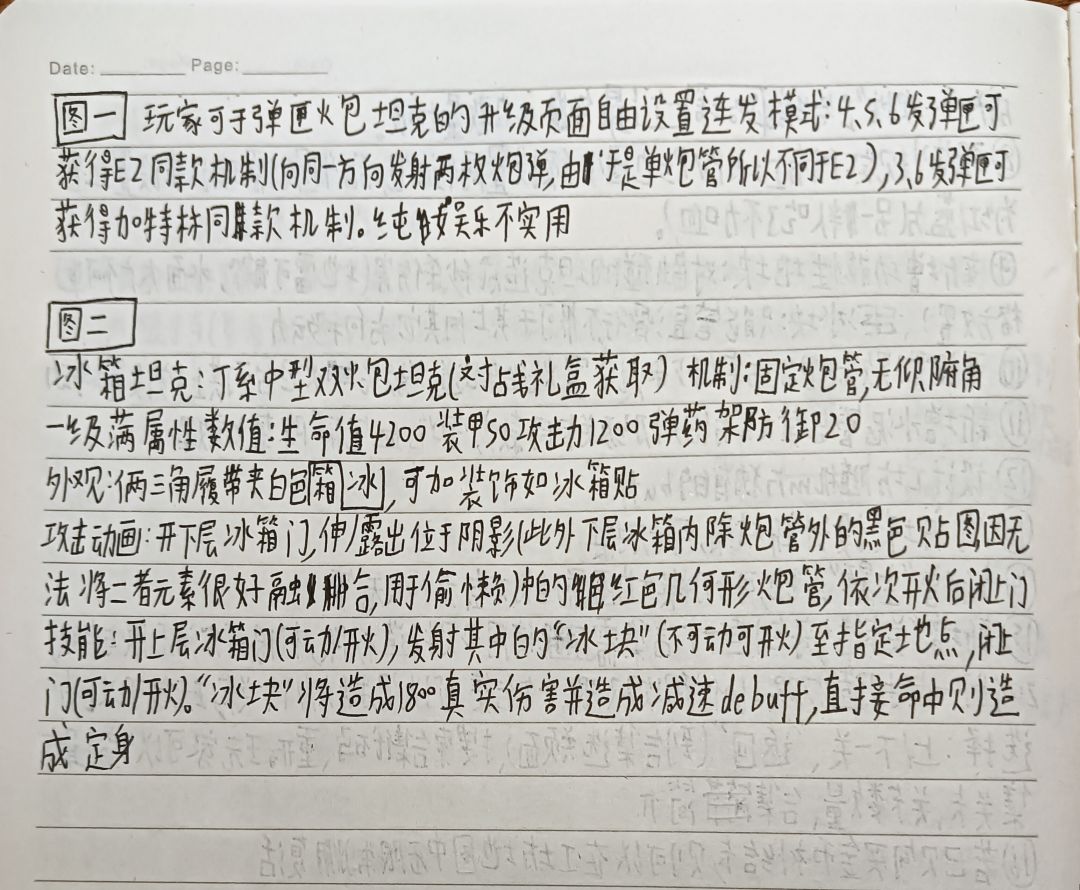 Date: Page:
图一 玩家可于弹匣火包坦克的升级页面自由设置连发模式:4、5、6发弹匣可
获得E2同款机制(向同一方向发射两枚炮弹,由于是单炮管所以不同于E2),3、6发弹匣可
获得加特林同款机制。纯娱乐不实用
图二
冰箱坦克:丁系中型双火包坦克(对战礼盒获取) 机制:固定炮管,无仰俯角
一级满属性数值:生命值4200 装甲50攻击力1200弹药架防御20
外观:俩三角履带夹白色箱冰,可加装饰如冰箱贴
攻击动画:开下层冰箱门,伸/露出位于阴影(此外下层冰箱内除炮管外的黑色贴图因无
法将二者元素很好融合,用于偷懒)中的粗红色几何形炮管,依次开火后闭上门
技能:开上层冰箱门(可动/开火),发射其中的“冰块”(不可动可开火)至指定地点,闭上
门(可动/开火)。“冰块”将造成1800真实伤害并造成减速debuff,直接命中则造
成定身